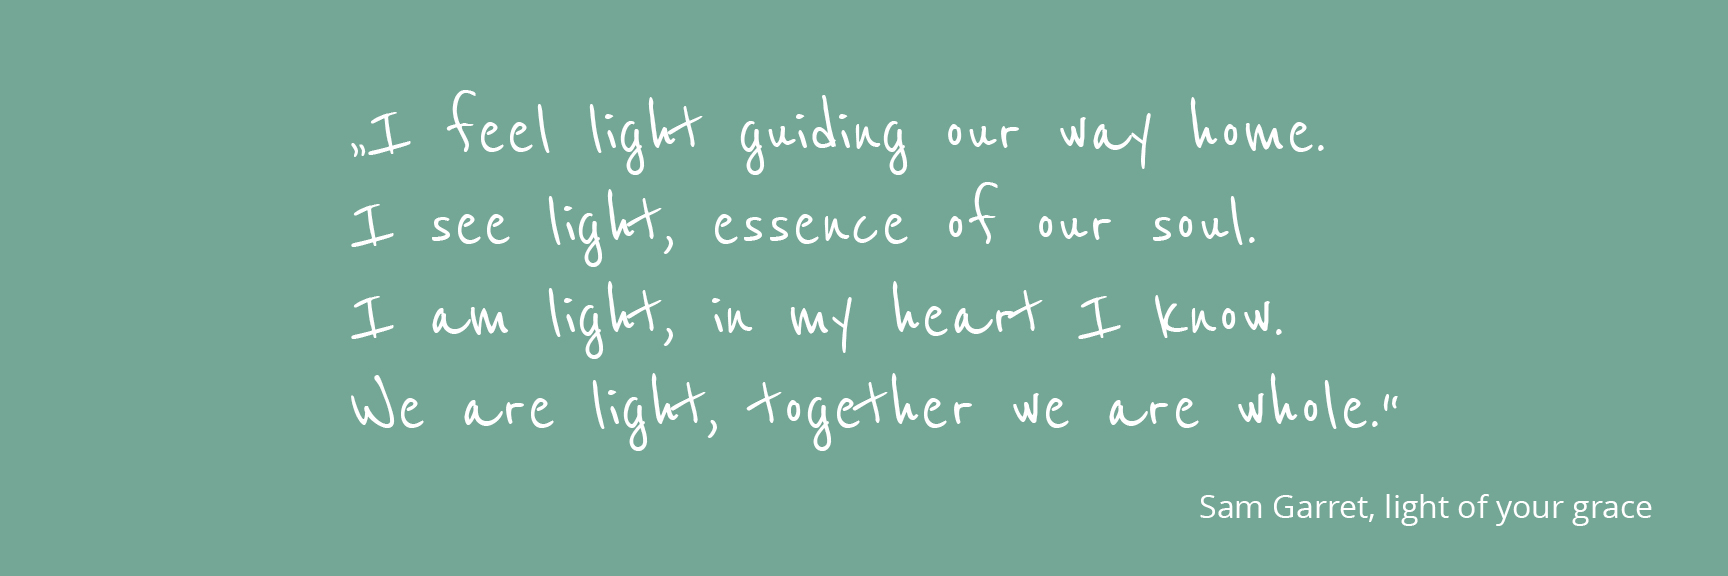 „I feel light guiding our way home.
I see light, essence of our soul.
I am light, in my heart I know.
We are light, together we are whole.“
Sam Garret, light of your grace